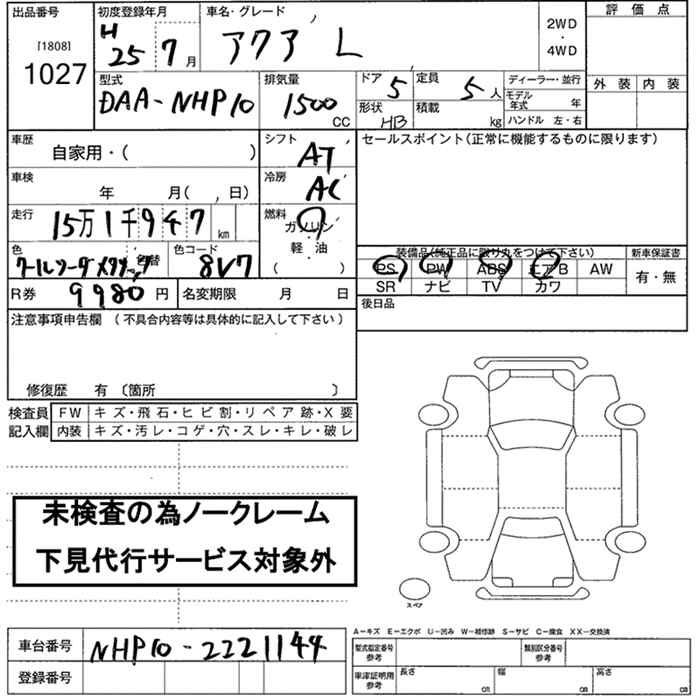 出品番号 初度登録年月 車名・グレード 評価点
[1808] H 25 7月 アクア L 2WD・4WD
1027
型式 排気量 ドア 5 定員 5人 ディーラー・並行 外装 内装
DAA-NHP10 1500 CC 形状 HB 積載 kg モデル年式 年
ハンドル 左・右
車歴 自家用・( ) シフト AT セールスポイント(正常に機能するものに限ります)
車検 年 月( , 日) 冷房 AC
走行 15万1千947 km 燃料 ガソリン
軽・油
( )
色 クールソーダメタリック 色替 色コード 8V7
装備品(純正品に限り丸をつけて下さい) 新車保証書
PS PW ABS エアB AW 有・無
SR ナビ TV カワ
R券 9980 円 名変期限 月 日 後日品
注意事項申告欄 (不具合内容等は具体的に記入して下さい)
修復歴 有 〔箇所 〕
検査員 FW キズ・飛石・ヒビ割・リペア跡・X要
記入欄 内装 キズ・汚レ・コゲ・穴・スレ・キレ・破レ
未検査の為ノークレーム
下見代行サービス対象外
スペア
車台番号 NHP10-2221144
登録番号
A-キズ E-エクボ U-凹み W-補修跡 S-サビ C-腐食 XX-交換済
型式指定番号 参考 類別区分番号 参考
車庫証明用 参考 長さ cm 幅 cm 高さ cm